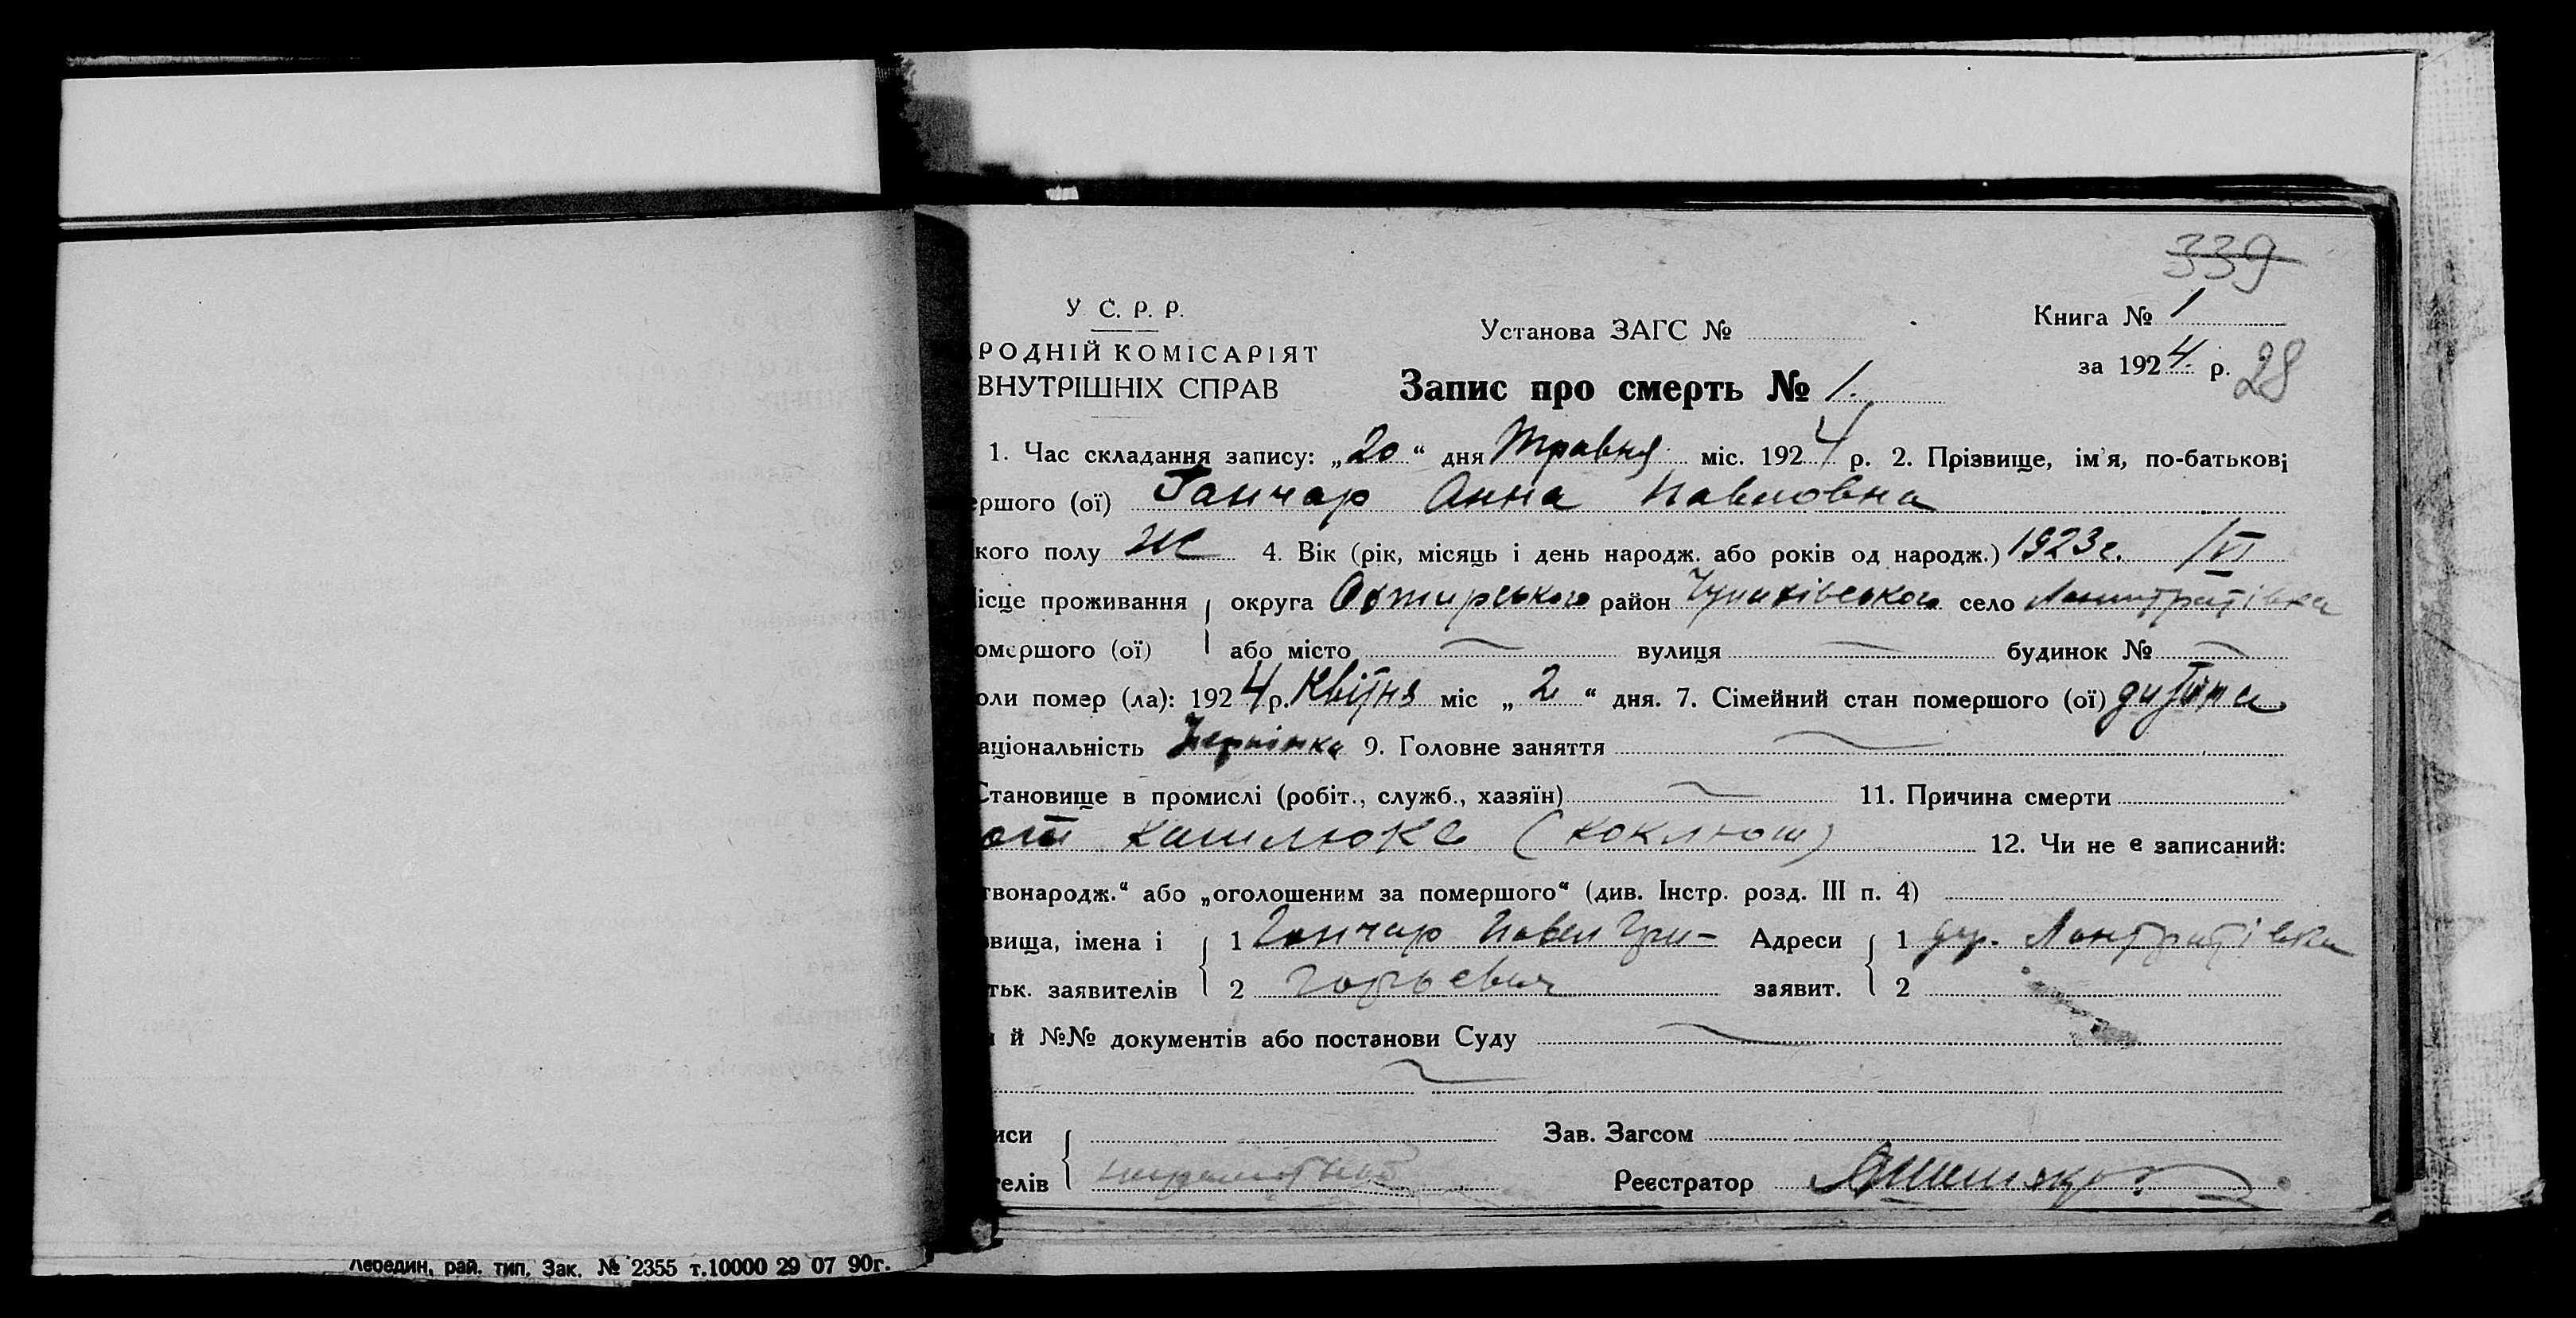 339
У С. Р. Р.
РОДНІЙ КОМІСАРІЯТ
ВНУТРІШНІХ СПРАВ
Установа ЗАГС №
Книга № 1
за 1924 р. 28
Запис про смерть № 1.
1. Час складання запису: „20“ дня Травня міс. 1924 р. 2. Прізвище, ім'я, по-батькові
ершого (ої) Ганчар Анна Павловна
кого полу Ж 4. Вік (рік, місяць і день народж. або років од народж.) 1923 г. 1/VI
ісце проживання округа Охтирського район село
омершого (ої) або місто вулиця будинок №
оли помер (ла): 1924 р. Квітня міс „2“ дня. 7. Сімейний стан помершого (ої) дитина
аціональність 9. Головне заняття
Становище в промислі (робіт., служб., хазяїн) 11. Причина смерти
от кашлюке (коклюш) 12. Чи не є записаний:
твонародж.“ або „оголошеним за помершого“ (див. Інстр. розд. III п. 4)
звища, імена і 1 Ганчар Павел Гри- Адреси 1
тьк. заявителів 2 горьевич заявит. 2
й №№ документів або постанови Суду
иси Зав. Загсом
телів Реєстратор
Лебедин, рай. тип. Зак. № 2355 т.10000 29 07 90г.